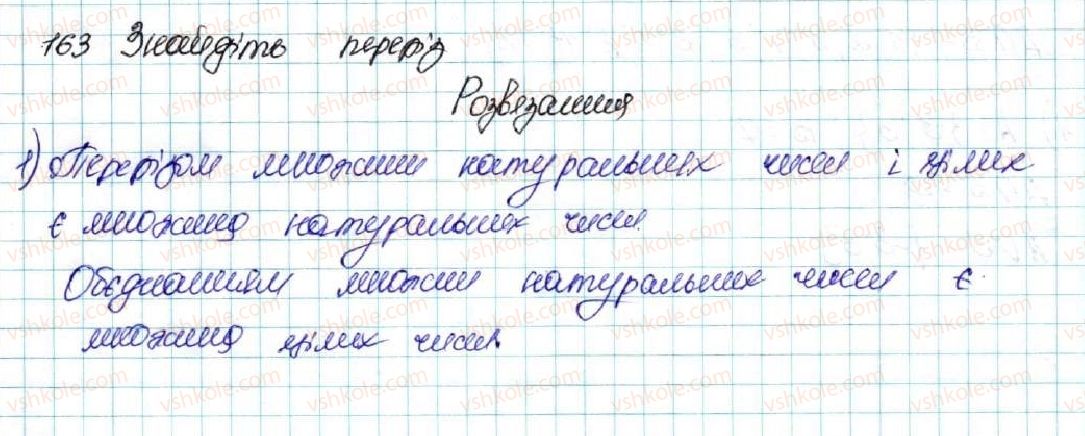 163 Знайдіть переріз
Розвязання
1) Перерізом множин натуральних чисел і цілих
є множина натуральних чисел.
Обєднанням множин натуральних чисел є
множина цілих чисел.